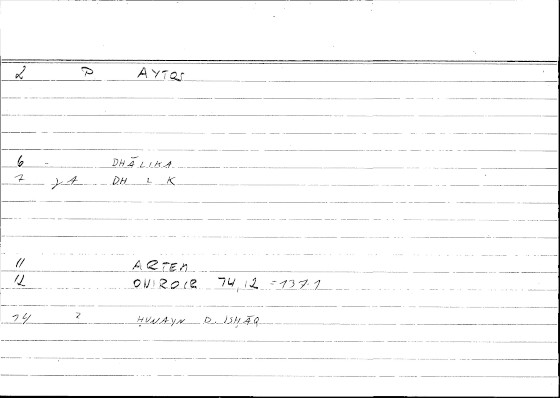 2 P AYTOS
6 - DHĀLIKA
7 yA DH L K
11 ARTEM
12 ONIROCR 74,12 = 137.1
14 2 ḤUNAYN B. ISḤĀQ